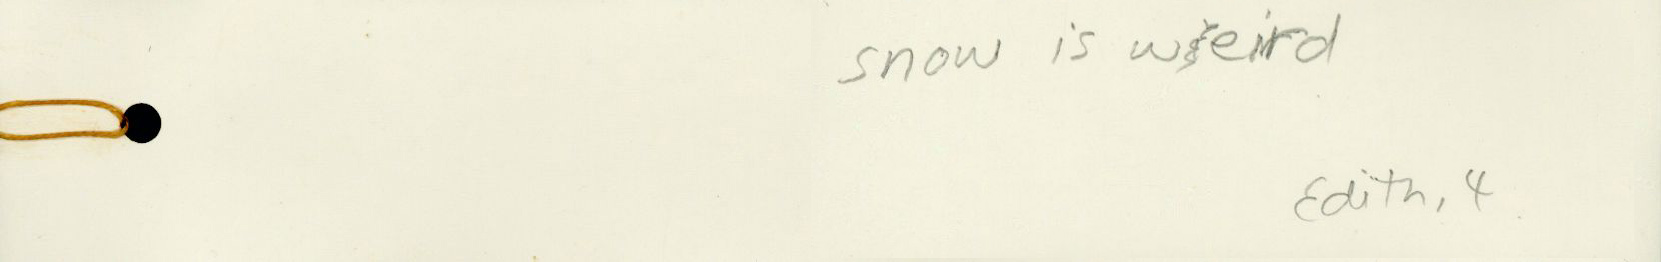 snow is weird
Edith, 4